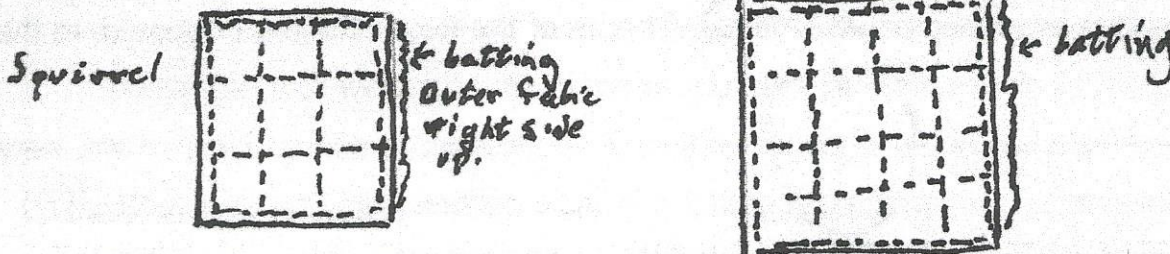 Squirrel
← batting
Outer Fabic
right side
up.
← batting